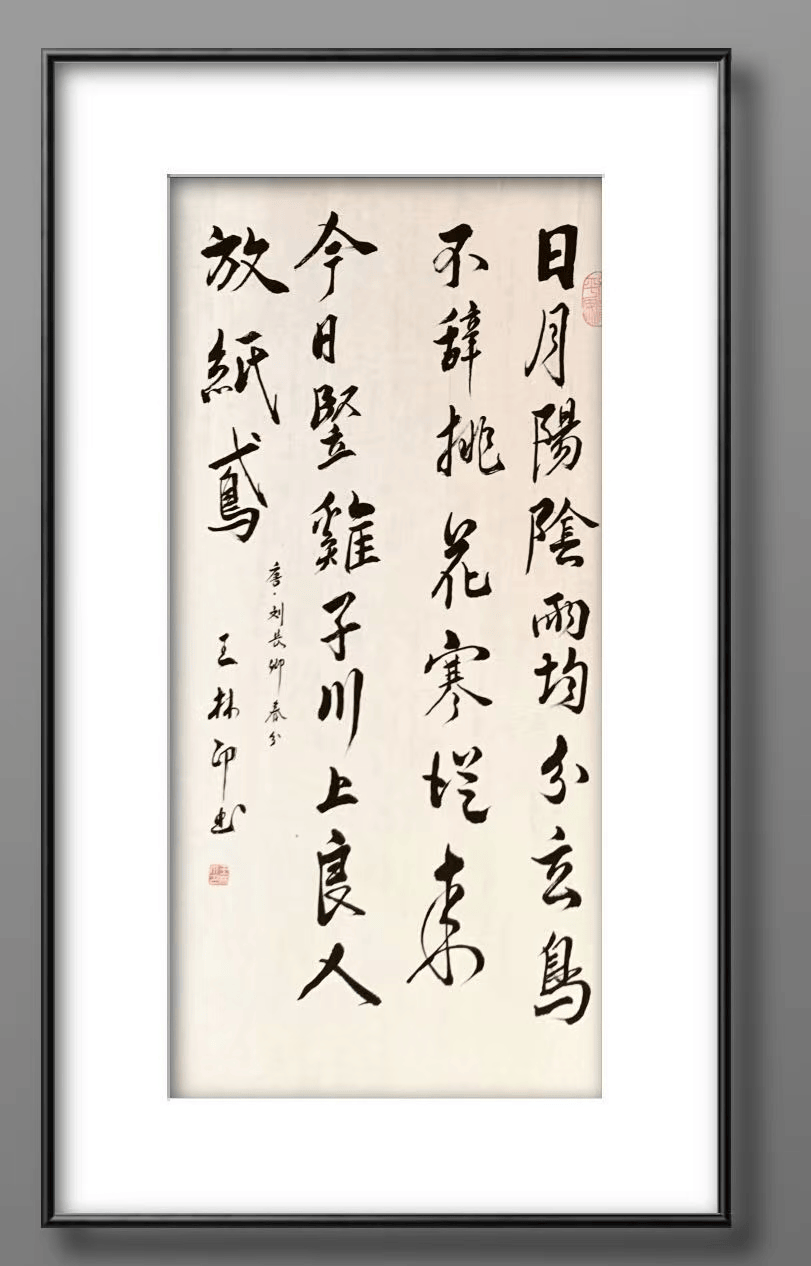 日月陽陰兩均分玄鳥
不辭桃花寒從來
今日竪雞子川上良人
放紙鳶
唐·刘長卿春分
王林印书